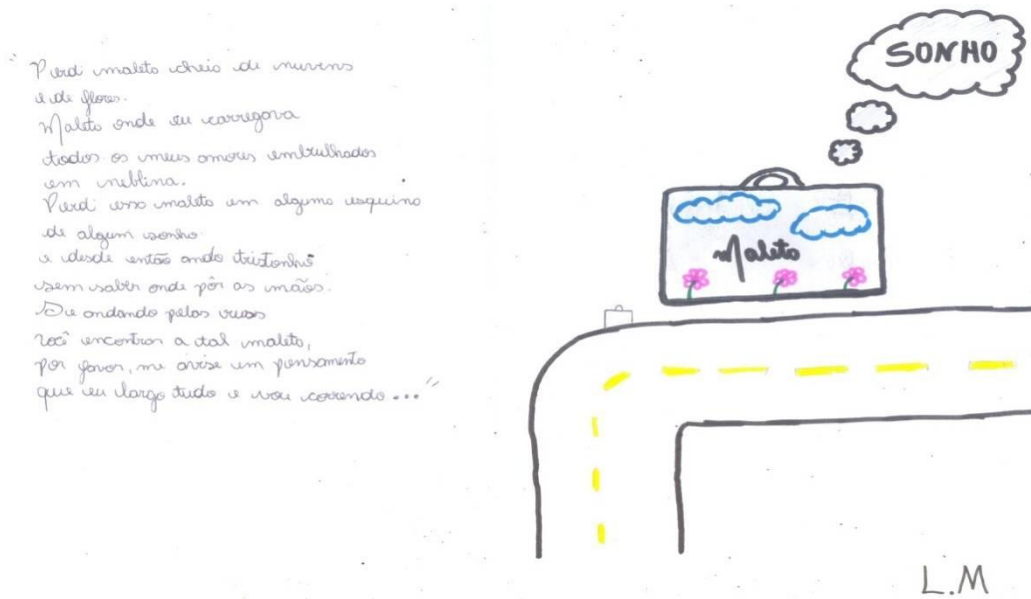 "Perdi maleta cheia de nuvens
e de flores.
Maleta onde eu carregava
todos os meus amores embrulhados
em neblina.
Perdi essa maleta em alguma esquina
de algum sonho
e desde então ando tristonho
sem saber onde pôr as mãos.
Se andando pelas ruas
você encontrar a tal maleta,
por favor, me avise em pensamento
que eu largo tudo e vou correndo..."
SONHO
Maleta
L.M